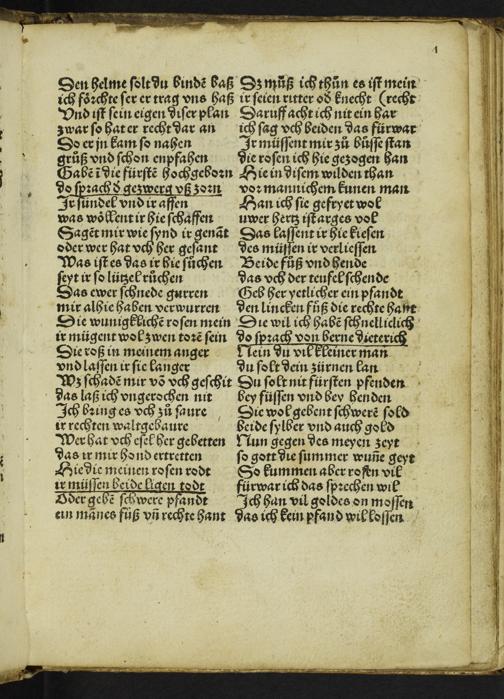 1
Den helme solt du bindē baß
ich förchte ser er trag vns haß
Vnd ist sein eigen diser plan
zwar so hat er recht dar an
So er jn kam so nahen
grüß vnd schon enpfahen
Gabē i die fürstē hochgeborn
do sprach d gezwerg vß zorn
Ir sündel vnd ir affen
was wöllent ir hie schaffen
Sagēt mir wie synd ir genāt
oder wer hat vch her gesant
Was ist es das ir hie süchen
seyt ir so lützel rüchen
Das ewer schnede gurren
mir alhie haben verwurren
Die wunigklichē rosen mein
ir mügent wol zwen torē sein
Die roß in meinem anger
vnd lassen ir sie langer
Wz schadē mir vō vch geschit
das laß ich vngerochen nit
Ich bring es vch zū saure
ir rechten waltgebaure
Wer hat vch esel her gebetten
das ir mir hond ertretten
Hie die meinen rosen rodt
ir müssen beide ligen todt
Oder gebē schwere pfandt
ein mānes füß vn̄ rechte hant
Dz müß ich thün es ist mein
ir seien ritter od knecht (recht
Daruff acht ich nit ein har
ich sag vch beiden das fürwar
Ir müssent mir zū büsse stan
die rosen ich hie gezogen han
Hie in disem wilden than
vor mannichem kunen man
Han ich sie gefryet wol
uwer hertz ist arges vol
Das lassent ir hie kiesen
des müssen ir verliessen
Beide füß vnd hende
das vch der teufel schende
Geb her yetlicher ein pfandt
den lincken füß die rechte hant
Die wil ich habē schnelliclich
do sprach von berne dieterich
Nein du vil kleiner man
du solt dein zürnen lan
Du solt nit fürsten pfenden
bey füssen vnd bey henden
Die wol gebent schwerē sold
beide sylber vnd auch gold
Nun gegen des meyen zeyt
so gott die summer wun̄e geyt
So kummen aber rosen vil
fürwar ich das sprechen wil
Ich han vil goldes on mossen
das ich kein pfand wil lossen